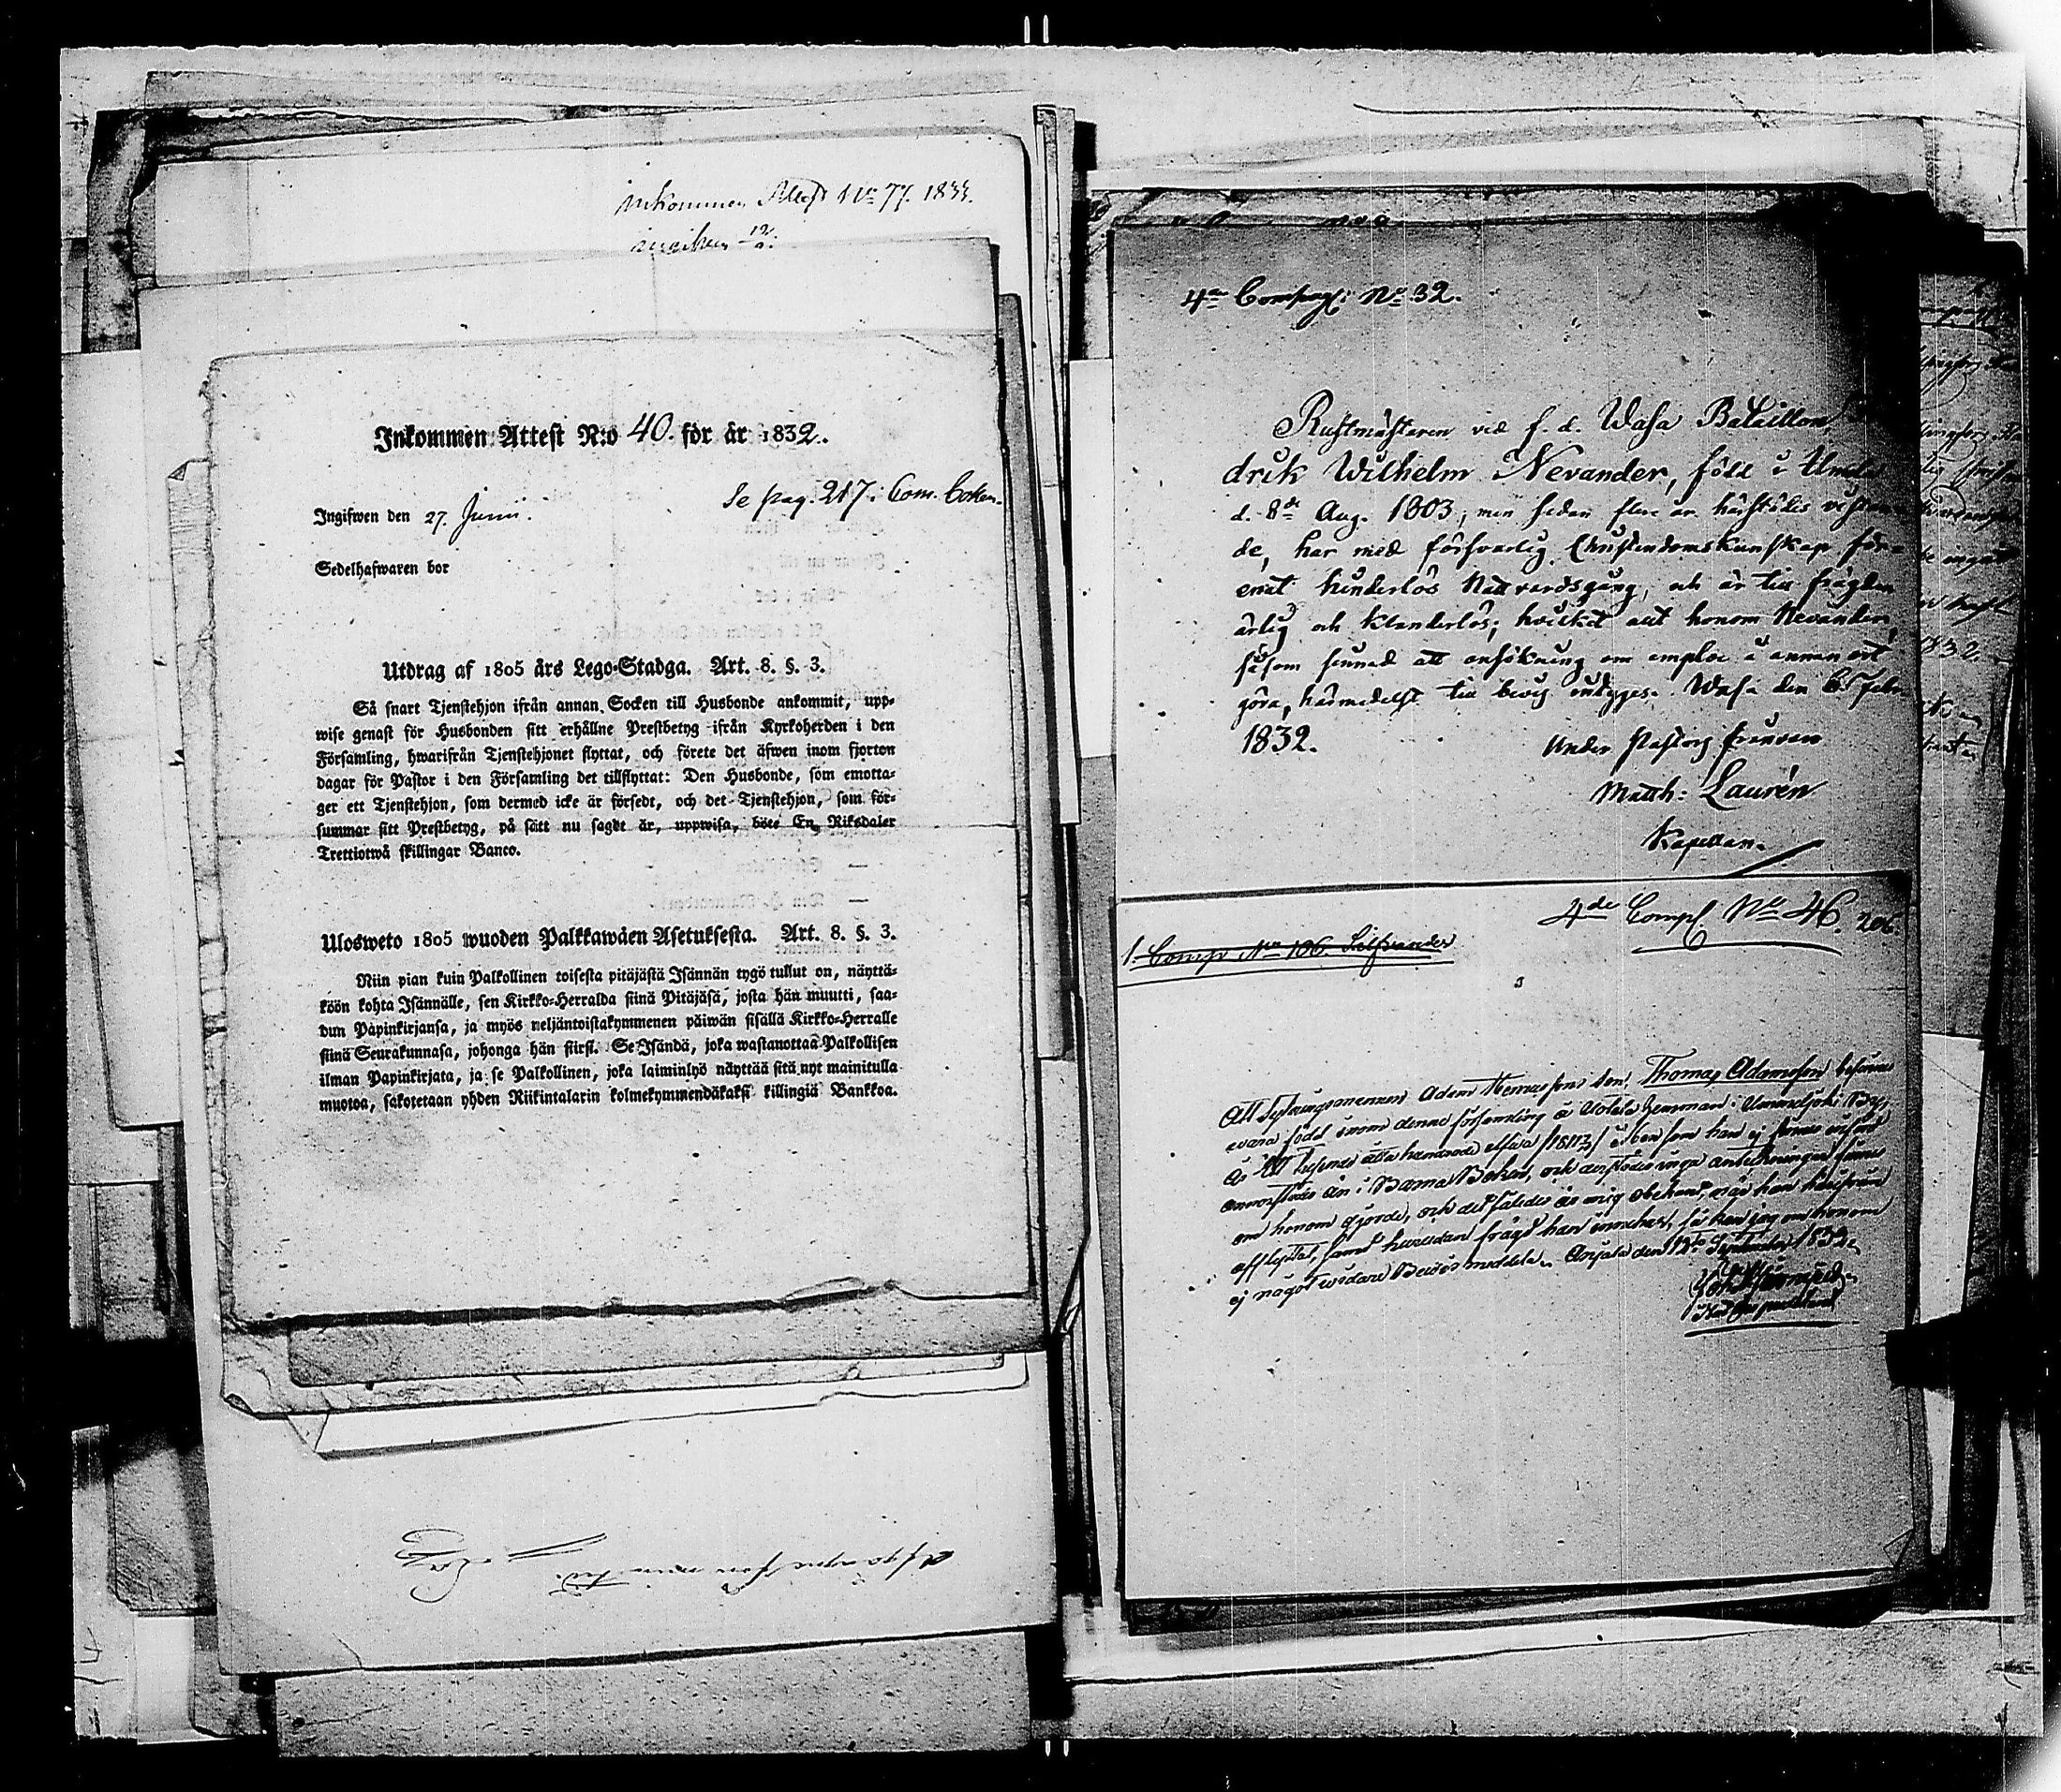 inkommen Attest No 77. 1833.
12
Inkommen Attest N:o 40. för år 1832.
Se pag. 217 i Com. Boken.
Ingifwen den 27. Junii.
Sedelhafwaren bor
Utdrag af 1805 års Lego-Stadga. Art. 8. §. 3.
Så snart Tjenstehjon ifrån annan Socken till Husbonde ankommit, upp-
wise genast för Husbonden sitt erhållne Prestbetyg ifrån Kyrkoherden i den
Församling, hwarifrån Tjenstehjonet flyttat, och förete det äfwen inom fjorton
dagar för Pastor i den Församling det tillflyttat: Den Husbonde, som emotta-
ger ett Tjenstehjon, som dermed icke är försedt, och det Tjenstehjon, som för-
summar sitt Prestbetyg, på sätt nu sagdt är, uppwisa, böte En Riksdaler
Trettiotwå skillingar Banco.
Ulosweto 1805 wuoden Palkkawäen Asetuksesta. Art. 8. §. 3.
Niin pian kuin Palkollinen toisesta pitäjästä Isännän tygö tullut on, näyttä-
köön kohta Isännälle, sen Kirkko-Herralda siinä Pitäjäsä, josta hän muutti, saa-
dun Papinkirjansa, ja myös neljäntoistakymmenen päiwän sisällä Kirkko-Herralle
siinä Seurakunnasa, johonga hän siirsi. Se Isändä, joka wastanottaa Palkollisen
ilman Papinkirjata, ja se Palkollinen, joka laiminlyö näyttää sitä nyt mainitulla
muotoa, sakotetaan yhden Riikintalarin kolmekymmendäkaksi killingiä Bankkoa.
4de Compag: No 32.
Rustmästaren vid f. d. Wasa Bataillon
drik Wilhelm Nevander, född i
d. 8de Aug. 1803, men sedan flere år härstädes vistan-
de, har med försvarlig Christendomskunskap för-
enat hinderlös Nattvardsgång, och är till frägden
ärlig och klanderlös; hvilket allt honom Nevander,
såsom sinnad att ansökning om emploi å annan ort
göra, härmedelst till bevis meddeles. Wasa den 6 Febr.
1832.
Under Pastors frånvaro
Matth: Laurén
Kapellan.
4de Comp. No 46. 206.
1. Comp No 106. Silfvander
Att Adam Thomassons son, Thomas Adamsson befinnes
vara född inom denne församling å Hemman i Ummeljoki By,
År Ett tusende åtta hundrade elfva /1811/ även som han ej finnes införd
annorstädes än i Barna Boken, och derstädes inga anteckningar finnes
om honom gjorde, och det således är mig obekant, när han härifrån
afflyttat, samt hurudan frägd han innehar, så kan jag om honom
ej något widare Bewis meddela. Anjala den 12te September 1832.